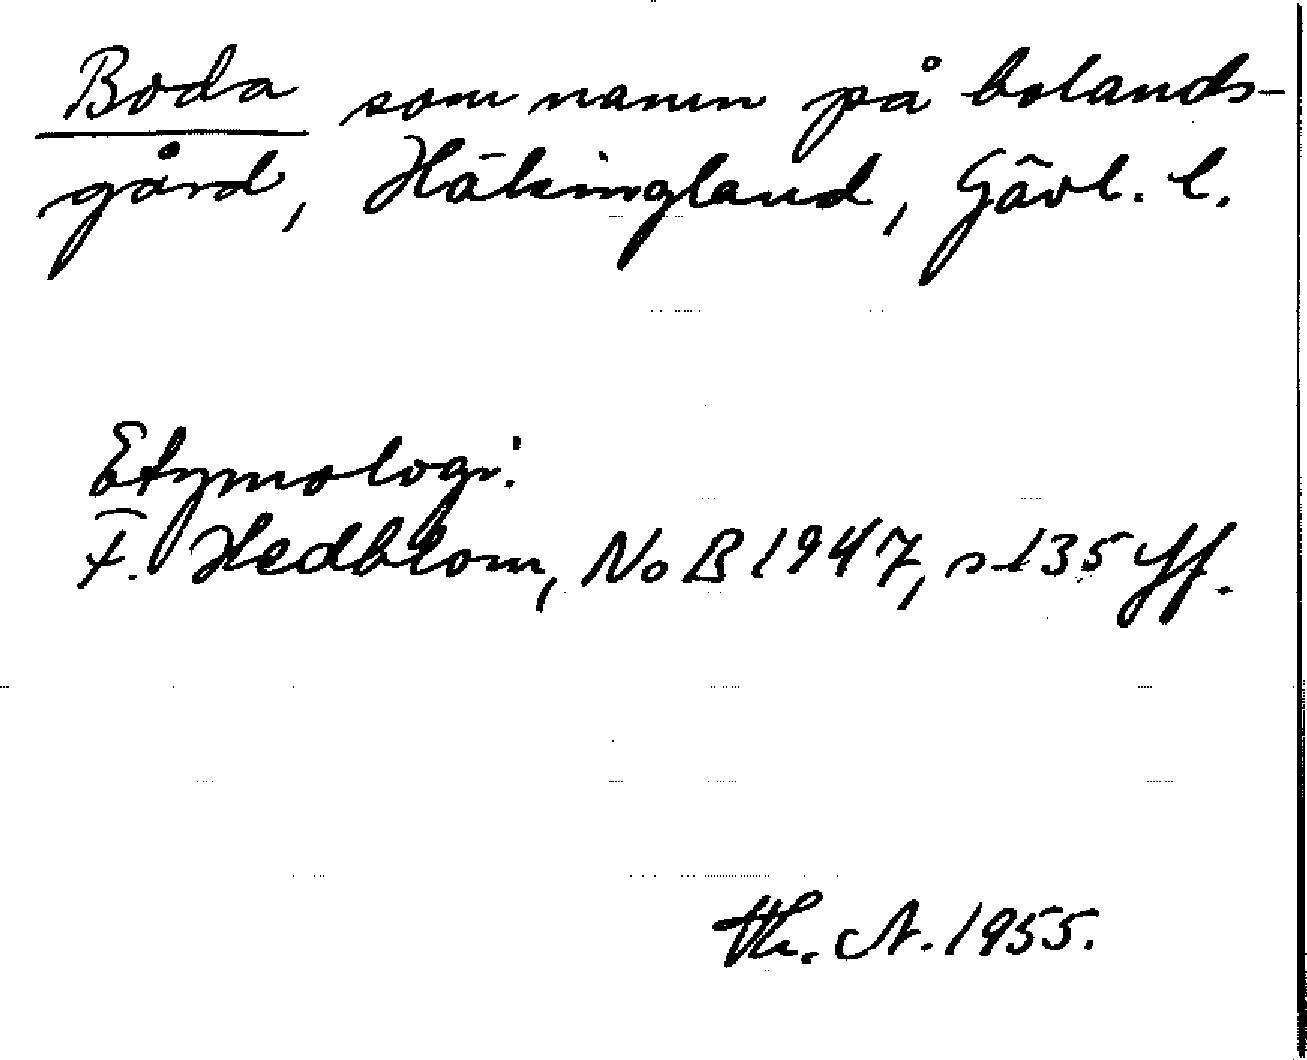 Boda som namn på bolands-
gård, Hälsingland, Gävl. l.
Etymologi:
F. Hedblom, NoB 1947, s. 135 ff.
Th. A. 1955.